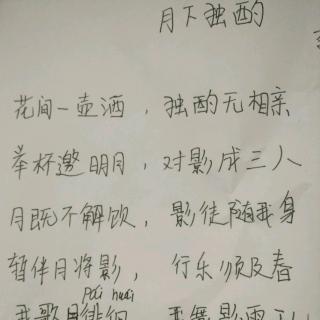 月下独酌
花间一壶酒，独酌无相亲
举杯邀明月，对影成三人
月既不解饮，影徒随我身
暂伴月将影，行乐须及春
pái huái
我歌月徘徊